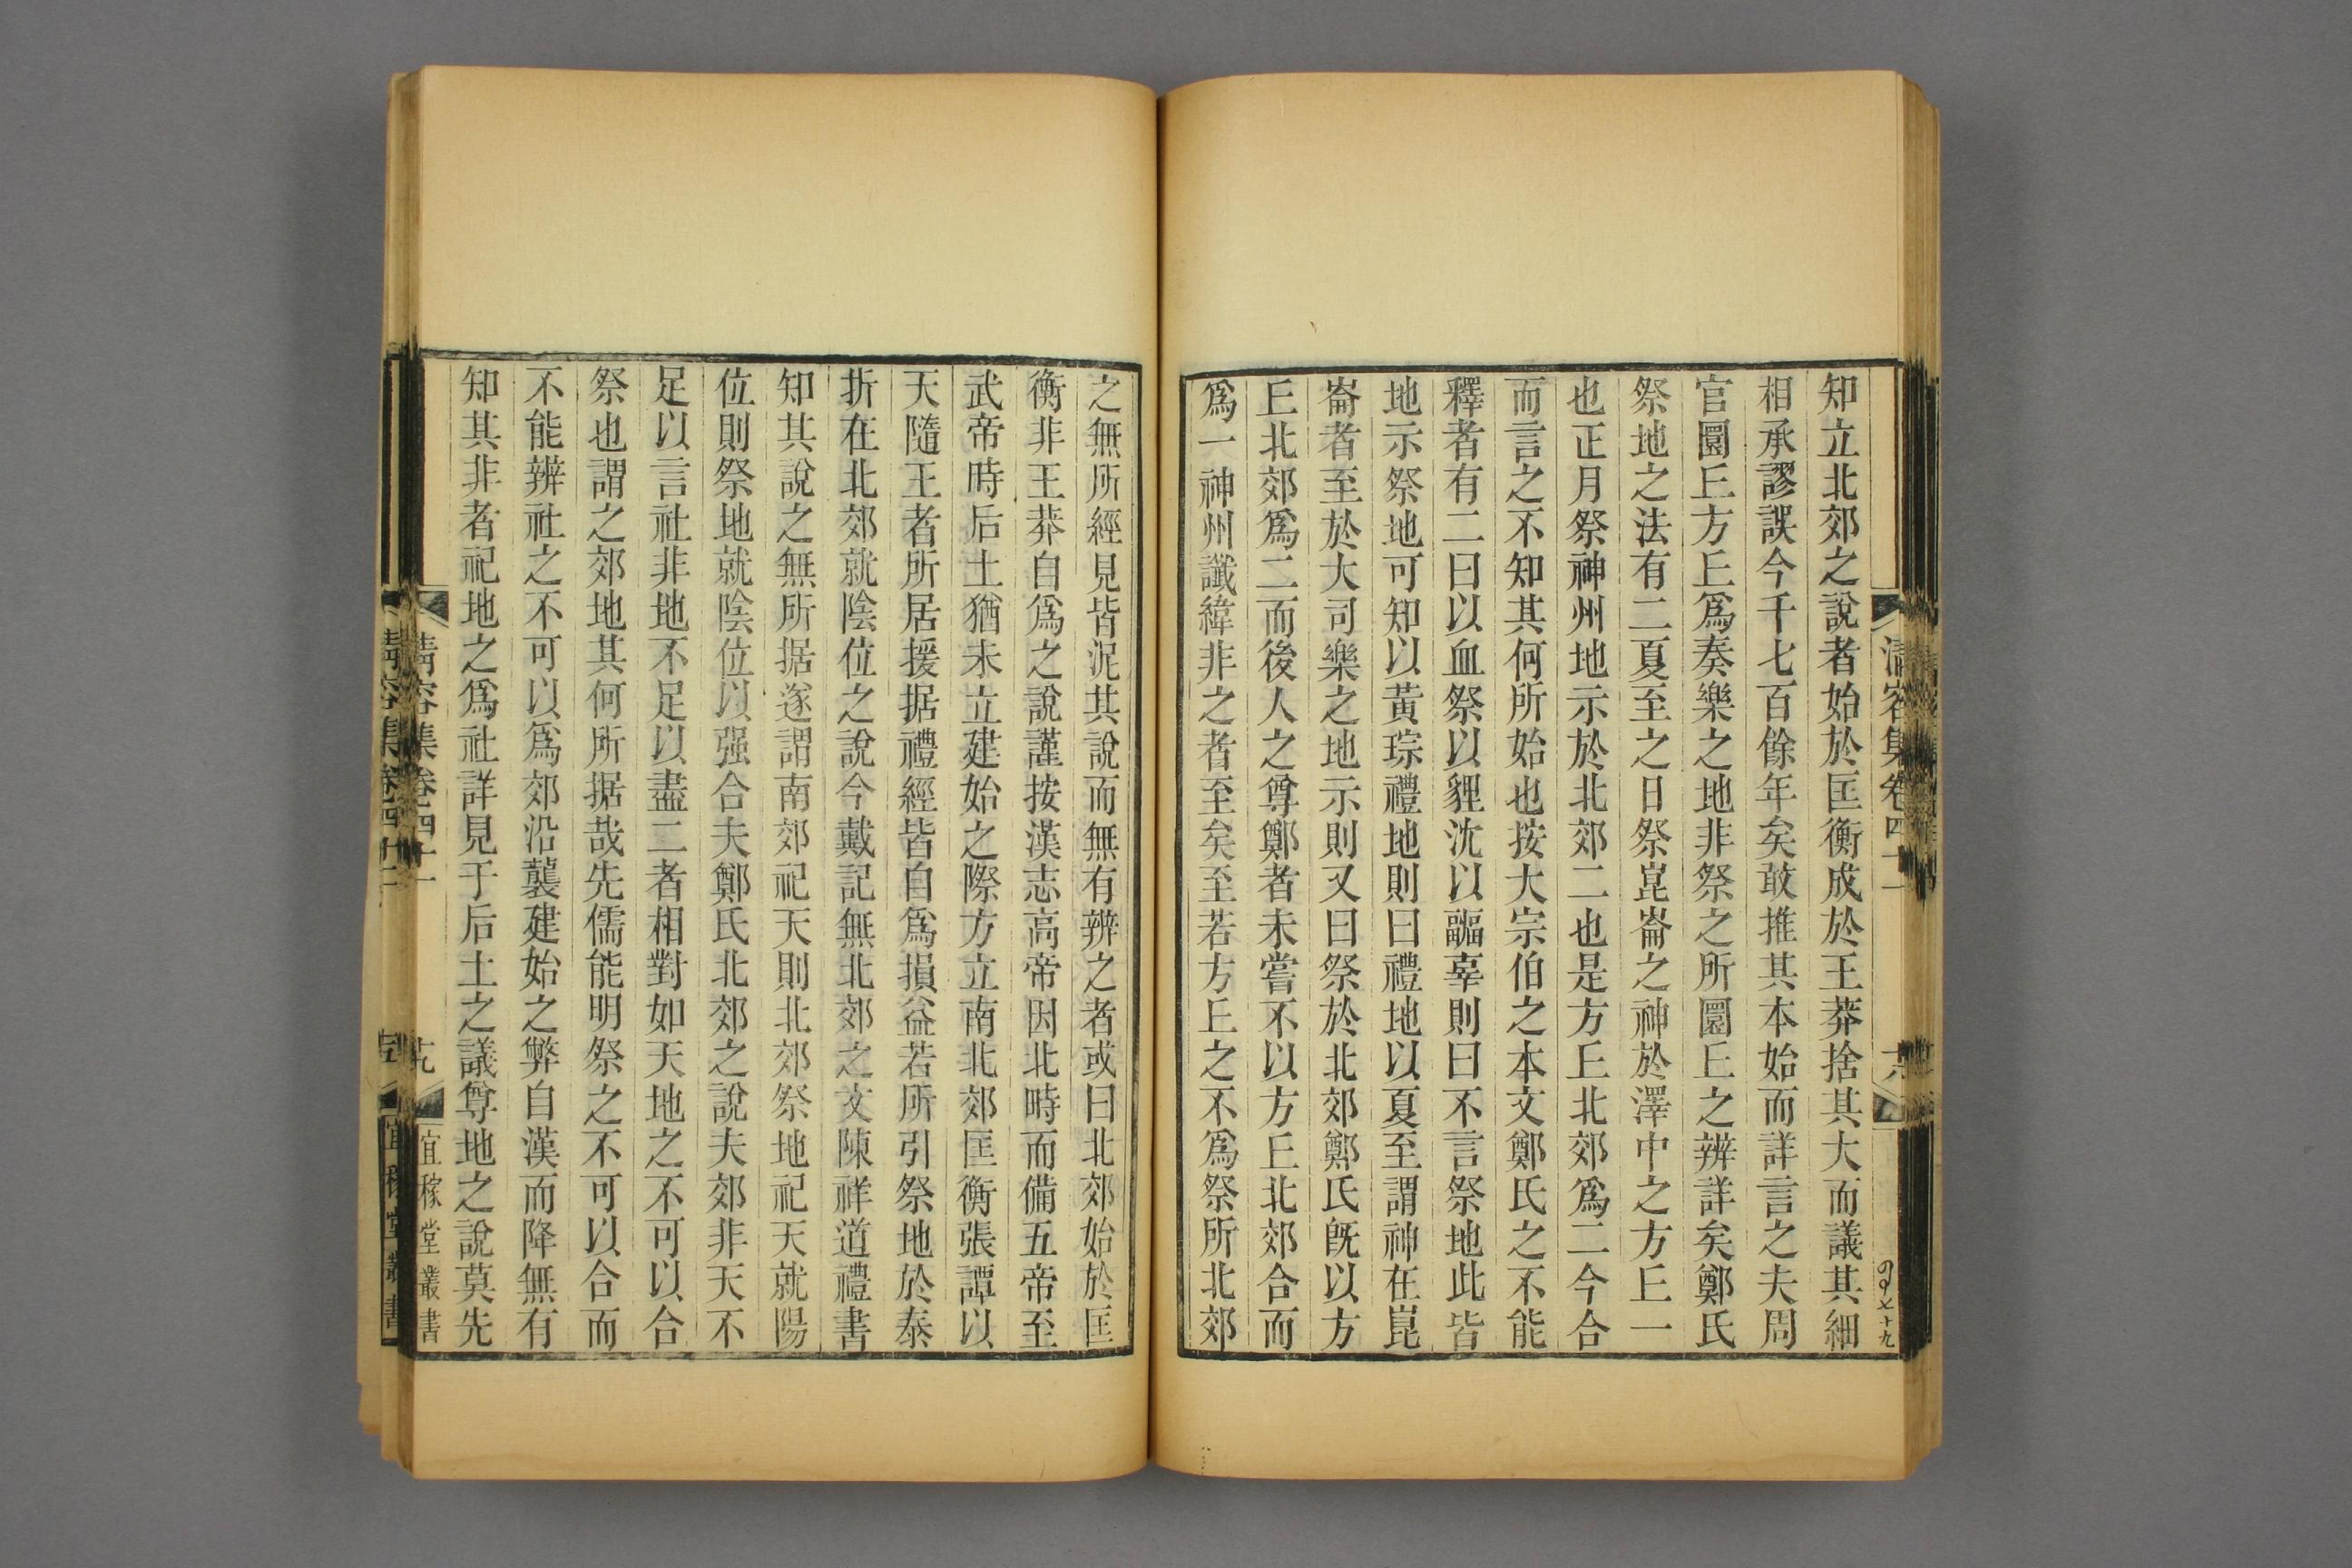 知立北郊之說者始於匡衡成於王莽捨其大而議其細
相承謬誤今千七百餘年矣敢推其本始而詳言之夫周
官圜丘方丘爲奏樂之地非祭之所圜丘之辨詳矣鄭氏
祭地之法有二夏至之日祭崑崙之神於澤中之方丘一
也正月祭神州地示於北郊二也是方丘北郊爲二今合
而言之不知其何所始也按大宗伯之本文鄭氏之不能
釋者有二曰以血祭以貍沈以疈辜則曰不言祭地此皆
地示祭地可知以黃琮禮地則曰禮地以夏至謂神在崑
崙者至於大司樂之地示則又曰祭於北郊鄭氏既以方
丘北郊爲二而後人之尊鄭者未嘗不以方丘北郊合而
爲一神州讖緯非之者至矣至若方丘之不爲祭所北郊
之無所經見皆泥其說而無有辨之者或曰北郊始於匡
衡非王莽自爲之說謹按漢志高帝因北畤而備五帝至
武帝時后土猶未立建始之際方立南北郊匡衡張譚以
天隨王者所居援据禮經皆自爲損益若所引祭地於泰
折在北郊就陰位之說今戴記無北郊之文陳祥道禮書
知其說之無所据遂謂南郊祀天則北郊祭地祀天就陽
位則祭地就陰位以强合夫鄭氏北郊之說夫郊非天不
足以言社非地不足以盡二者相對如天地之不可以合
祭也謂之郊地其何所据哉先儒能明祭之不可以合而
不能辨社之不可以爲郊沿襲建始之弊自漢而降無有
知其非者祀地之爲社詳見于后土之議尊地之說莫先
清容集卷四十一
宜稼堂叢書